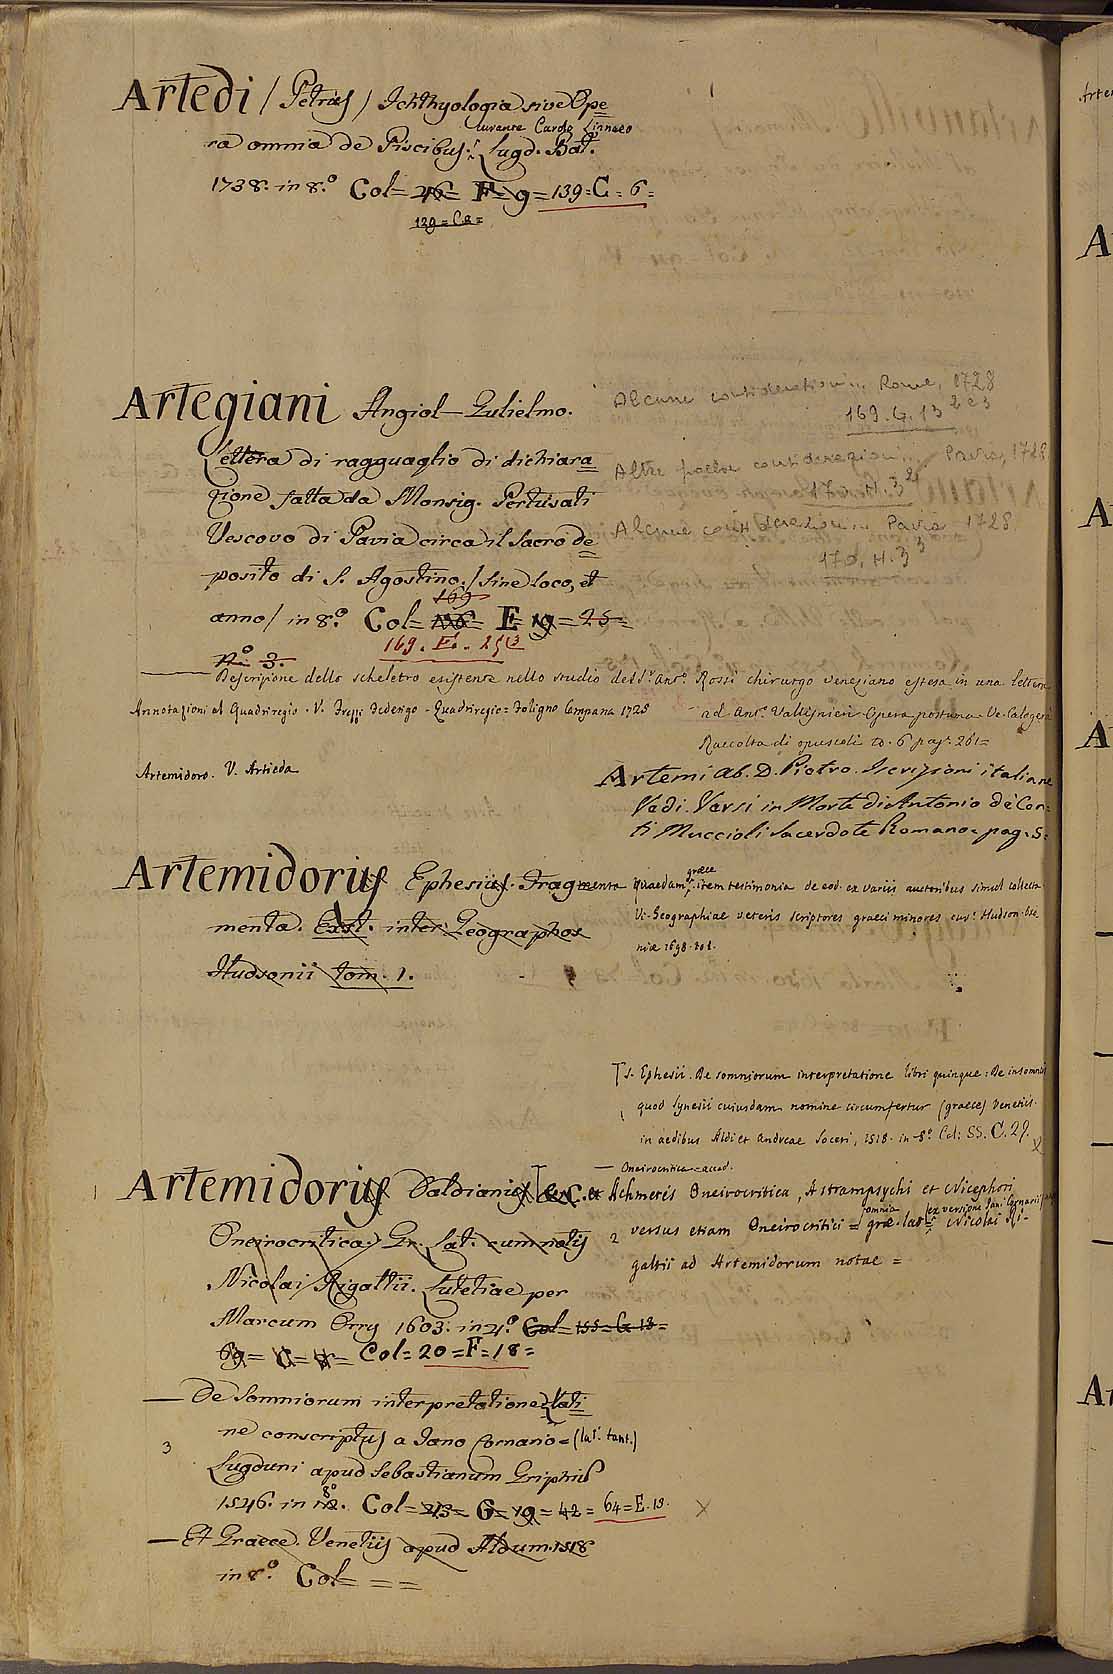 Artedi / Petrus / Ichthyologia sive Ope
ra omnia de Piscibus. Lugd. Bat.
curante Carolo Linnaeo
1738. in 8.o Col= 46= F= 9= 139= C= 6=
129= C2=
Artegiani Angiol-Gulielmo.
Lettera di ragguaglio di dichiara
zione fatta da Monsig. Pertusati
Vescovo di Pavia circa il Sacro de
posito di S. Agostino. / sine loco, et
169
anno / in 8.o Col= E= 19= 25=
169. E. 25
No 3.
Alcune considerazioni... Roma, 1728
169. G. 13 2 e 3
Altre poche considerazioni... Pavia, 1728
170. H. 3
Alcune considerazioni... Pavia 1728
170. H. 3 3
— Descrizione dello scheletro esistente nello studio del Sr. Anto. Rossi chirurgo veneziano estesa in una lettera
ad Anto. Vallisnieri Opera postuma. V. Calogerà
Raccolta di opuscoli to. 6 pag. 261=
Annotazioni al Quadriregio. V. Frezzi Federigo - Quadriregio = Foligno Campana 1725
Artemidoro. V. Artieda
Artemi Ab. D. Pietro. Iscrizioni italiane
Vedi. Versi in Morte di Antonio de Con=
ti Muccioli Sacerdote Romano= pag. 5=
Artemidorus Ephesius. Fragmenta quaedam graece; item testimonia de eod. ex variis auctoribus simul collecta
menta. Exst. inter Geographos
Hudsonii tom. 1.
V. Geographiae veteris scriptores graeci minores cur. Hudson.
niae 1698. to 1.
S. Ephesii. De somniorum interpretatione libri quinque: De insomniis
quod Synesii cuiusdam nomine circumfertur (graece) Venetiis.
in aedibus Aldi et Andreae Soceri, 1518. in 8.o Col: SS. C. 29.
1 Artemidorus Daldianus
Oneirocritica. Gr. Lat. cum notis
Nicolai Rigaltii. Lutetiae per
Marcum Orry 1603. in 4.o Col= 155= G 13=
69= C= 8= Col= 20= F= 18=
— Oneirocritica
et Achmetis Oneirocritica, Astrampsychi et Nicephori
2 versus etiam Oneirocritici = omnia grae. lat. ex versione Jani Cornarii Nicolai Ri-
galtii ad Artemidorum notae =
— De Somniorum interpretatione Lati
ne conscriptus a Jano Cornario= (lat. tant.)
3
Lugduni apud Sebastianum Griphiu
1546. in 8o. Col= 213= G= 19= 42= 64= E. 19.
— Et Graece. Venetiis apud Aldum 1518
in 8.o Col= = =